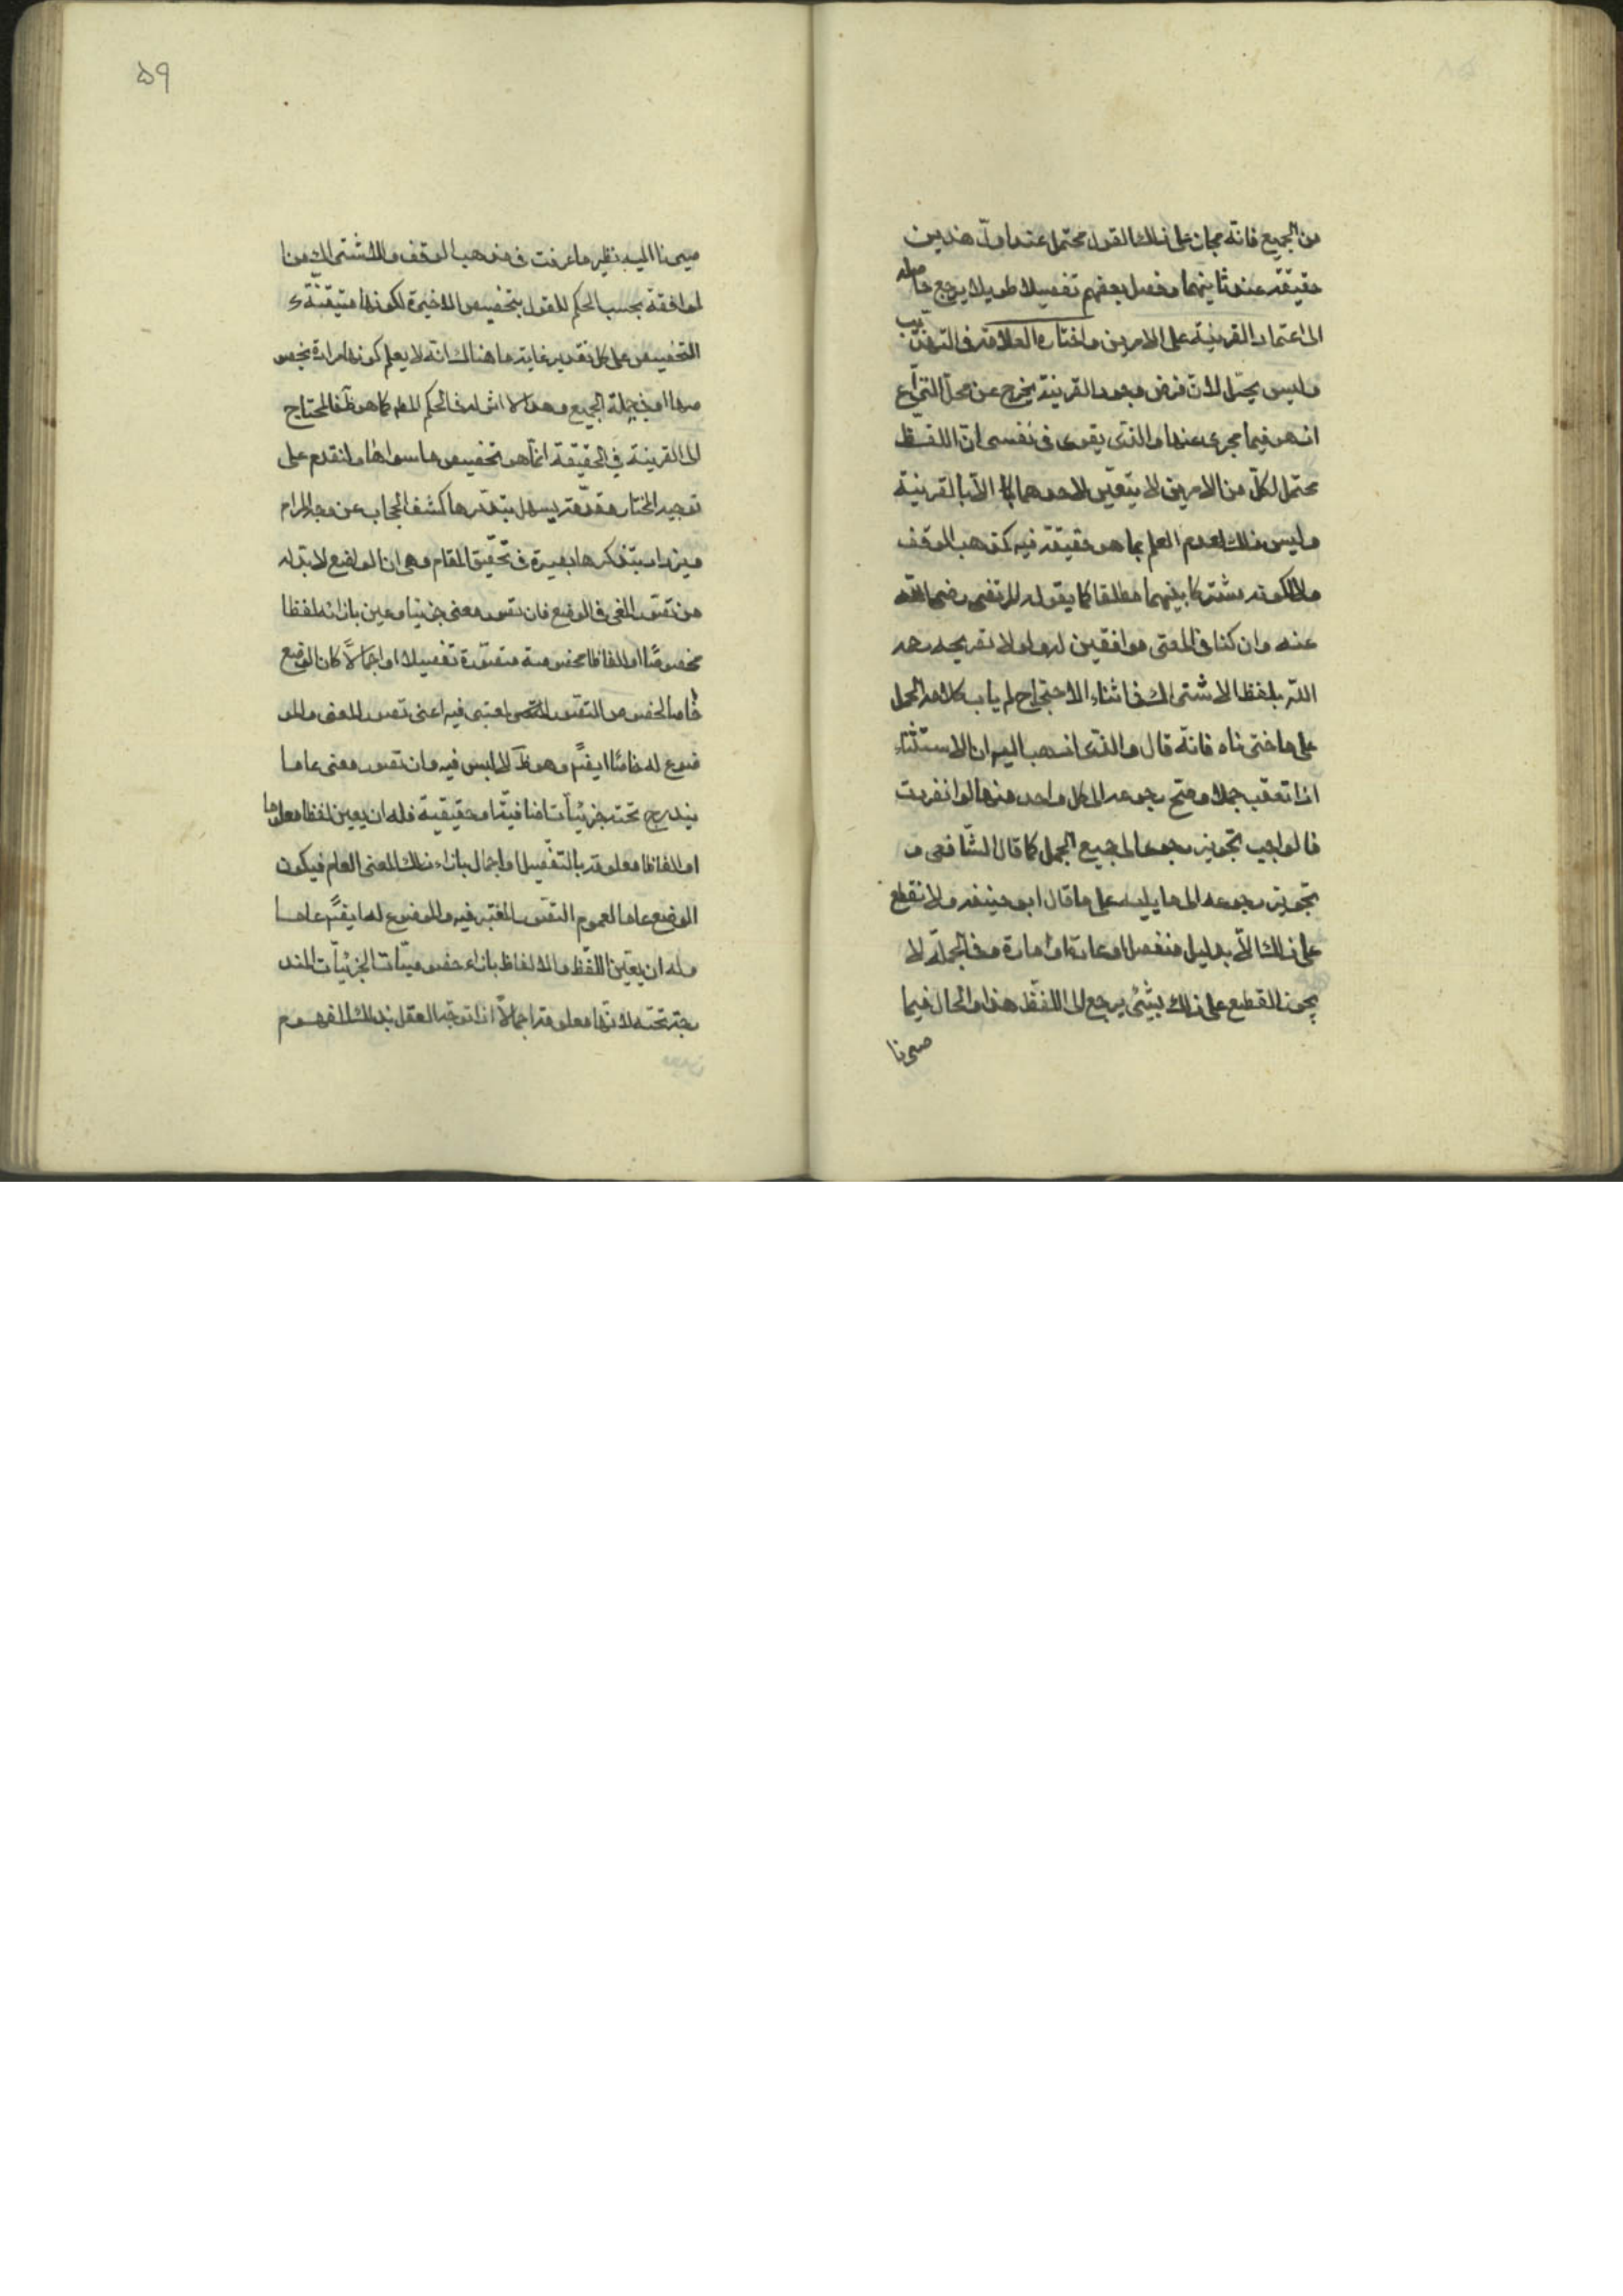 من الجميع فانه مجاز على ذلك القول محتمل عند اول هذين
حقيقة عند ثانيهما وفصل بعضهم تفصيلا طويلا يرجع حاصله
الى اعتماد القرينة على الامرين واختاره العلامة في التهذيب
وليس بجيد لان فرض وجود القرينة يخرج عن محل النزاع
اذ هو فيما عرى عنها والذى يقوى فى نفسى ان اللفظ
محتمل لكل من الامرين لا يتعين لاحدهما الا بالقرينة
وليس ذلك لعدم العلم بما هو حقيقة فيه كمذهب الوقف
ولا لكونه مشتركا بينهما مطلقا كما يقوله المرتضى رضى الله
عنه وان كنا فى المعنى موافقين له ولولا تصريحه رحمه
الله بلفظ الاشتراك فى اثناء الاحتجاج لم ياب كلامه الحمل
على ما اخترناه فانه قال والذى اذهب اليه ان الاستثناء
اذا تعقب جملا وصح رجوعه الى كل واحد منها لو انفردت
فالواجب تجويز رجوعه الى جميع الجمل كما قال الشافعى و
تجويز رجوعه الى ما يليه على ما قال ابو حنيفه ولا نقطع
على ذلك الا بدليل منفصل او عادة او امارة وفى الجملة لا
يجوز القطع على ذلك بشىء يرجع الى اللفظ هذا والحال فيما
صرنا
٥٩
صرنا اليه نظير ما عرفت فى مذهب الوقف والاشتراك من
الموافقة بحسب الحكم للقول بتخصيص الاخيرة لكونها متيقنة
التخصيص على كل تقدير غاية ما هناك انه لا يعلم كونها مرادة بخصو
صها او فى جملة الجميع وهو لا اثر له فى الحكم المط كما هو ظ فالمحتاج
الى القرينة فى الحقيقة انما هو تخصيص ما سواها ولنقدم على
توجيه المختار مقدمة يسهل بتدبرها كشف الحجاب عن وجه المرام
ويزداد بتذكرها بصيرة فى تحقيق المقام وهى ان الواضع لابد له
من تصور المعنى فى الوضع فان تصور معنى جزئيا وعين بازائه لفظا
مخصوصا او الفاظا مخصوصة متصورة تفصيلا او اجمالا كان الوضع
خاصا لخصوص التصور المعتبر فيه اعنى تصور المعنى والمو
ضوع له خاصا ايضا وهو ظ لا لبس فيه وان تصور معنى عاما
يندرج تحته جزئيات اضافية او حقيقية فله ان يعين لفظا معلوما
او الفاظا معلومة بالتفصيل او اجمال بازاء ذلك المعنى العام فيكون
الوضع عاما لعموم التصور المعتبر فيه والموضوع له ايضا عاما
وله ان يعين اللفظ والالفاظ بازاء خصوصيات الجزئيات المند
رجة تحته لانها معلومة اجمالا اذا توجه العقل بذلك المفهوم